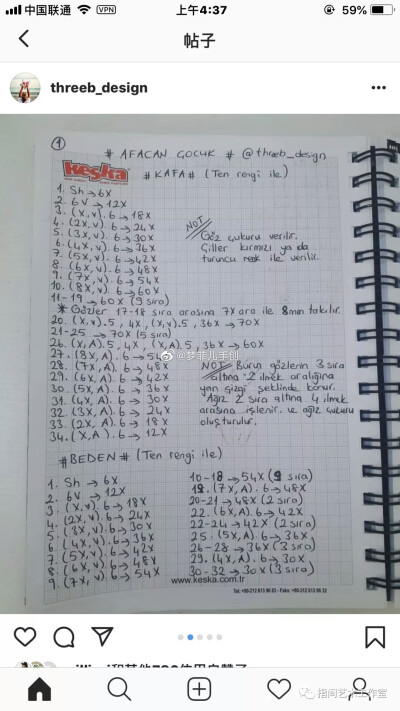 中国联通 VPN 上午4:37 59%
帖子
threeb_design
1
# AFACAN ÇOCUK # @threeb_design
keskα
# KAFA # (Ten rengi ile)
1. Sh → 6X
2. 6V → 12X
3. (X,V).6 → 18X
4. (2X,V).6 → 24X
5. (3X,V).6 → 30X
6. (4X,V).6 → 36X
7. (5X,V).6 → 42X
8. (6X,V).6 → 48X
9. (7X,V).6 → 54X
10. (8X,V).6 → 60X
11-19 → 60X (9 sıra)
NOT
Göz çukuru verilir.
Çiller kırmızı ya da
turuncu renk ile verilir.
* Gözler 17-18 sıra arasına 7X ara ile 8mm takılır.
20. (X,V).5, 4X, (X,V).5, 36X → 70X
21-25 → 70X (5 sıra)
26. (X,A).5, 4X, (X,A).5, 36X → 60X
27. (8X,A).6 → 54X
28. (7X,A).6 → 48X
29. (6X,A).6 → 42X
30. (5X,A).6 → 36X
31. (4X,A).6 → 30X
32. (3X,A).6 → 24X
33. (2X,A).6 → 18X
34. (X,A).6 → 12X
NOT
Burun gözlerin 3 sıra
altına 2 ilmek aralığına
yan çizgi şeklinde konur.
Ağız 2 sıra altına 4 ilmek
arasına işlenir. ve ağız çukuru
oluşturulur.
@梦菲儿手创
# BEDEN # (Ten rengi ile)
1. Sh → 6X
2. 6V → 12X
3. (X,V).6 → 18X
4. (2X,V).6 → 24X
5. (3X,V).6 → 30X
6. (4X,V).6 → 36X
7. (5X,V).6 → 42X
8. (6X,V).6 → 48X
9. (7X,V).6 → 54X
10-18 → 54X (9 sıra)
19. (7X,A).6 → 48X
20-21 → 48X (2 sıra)
22. (6X,A).6 → 42X
22-24 → 42X (2 sıra)
25. (5X,A).6 → 36X
26-28 → 36X (3 sıra)
29. (4X,A).6 → 30X
30-32 → 30X (3 sıra)
www.keska.com.tr
指间艺术工作室